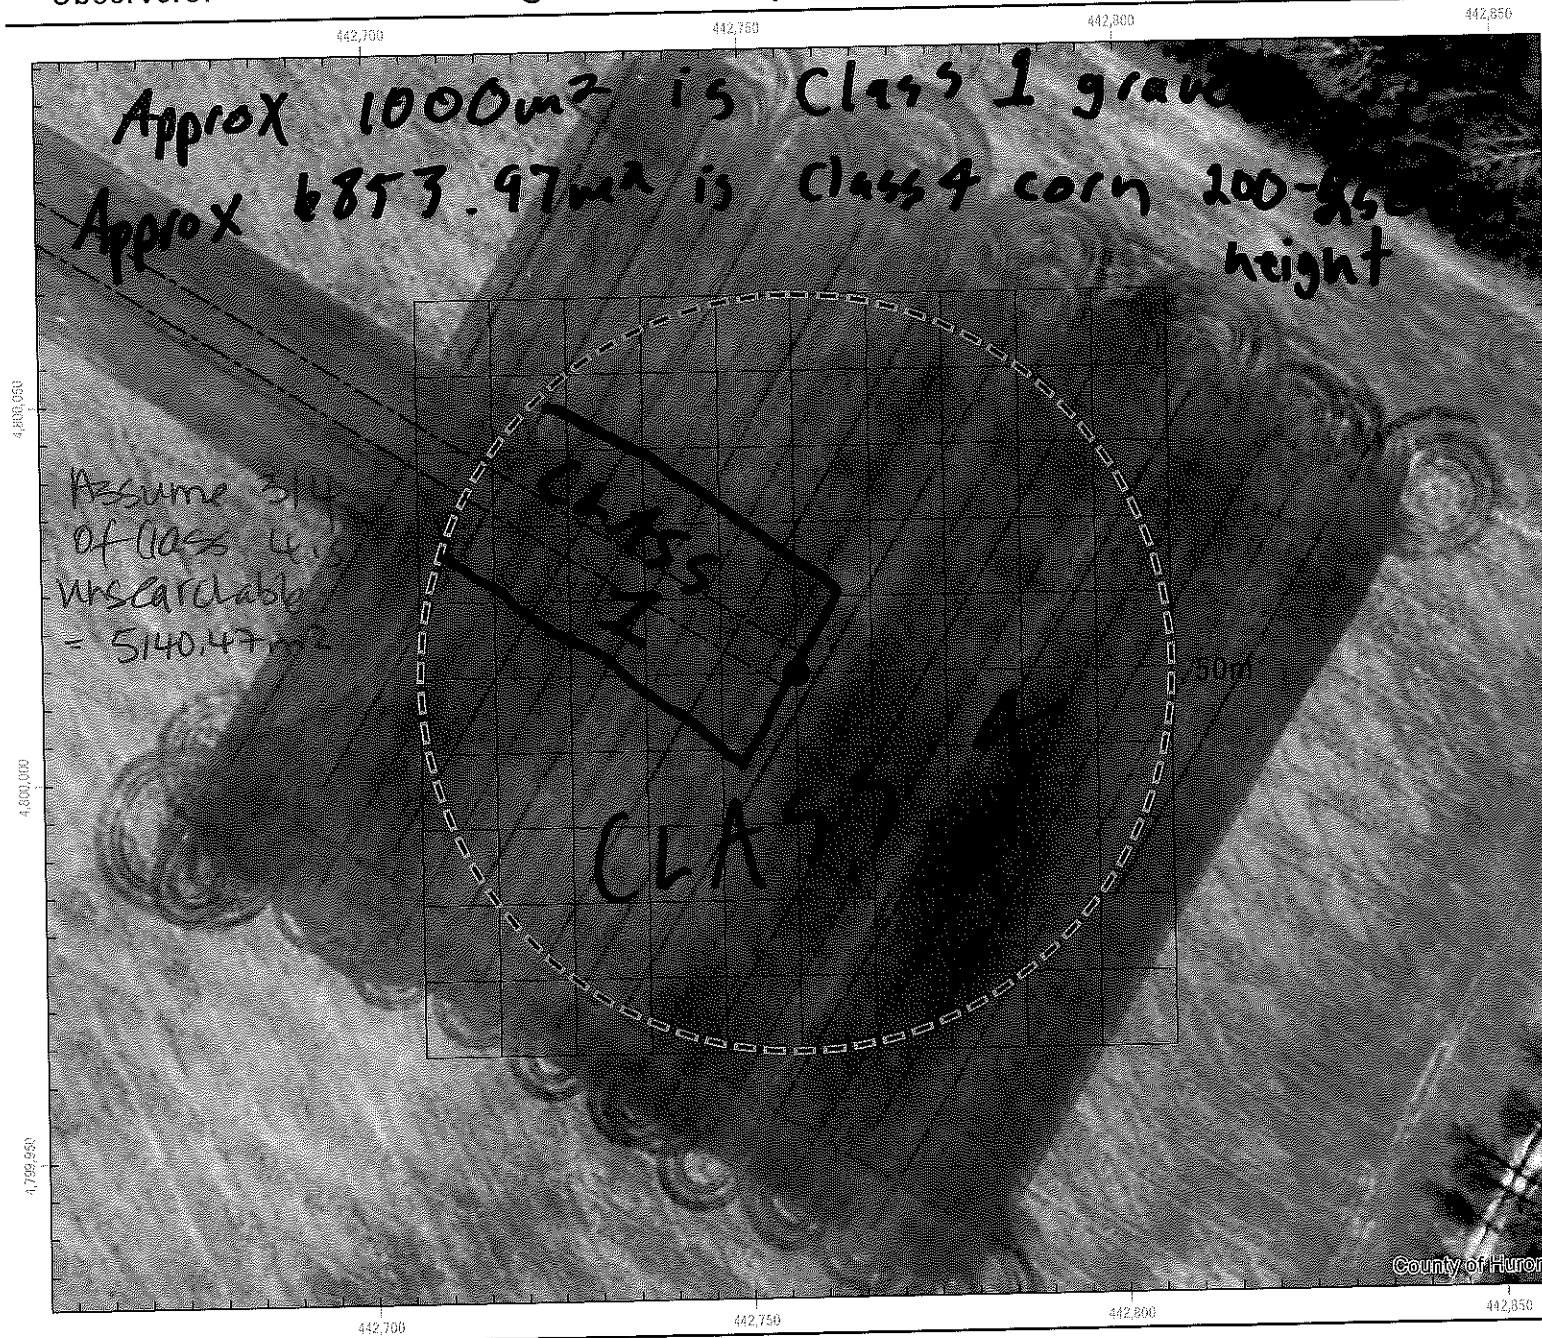 Observers:
442,700 442,750 442,800 442,850
Approx 1000m² is Class 1
Approx 6853.97m² is Class 4 corn
height
4,800,050
Assume 3/4
Of Class 4 is
unsearchable
= 5140.47m²
Class
1
50m
4,800,000
CLASS 4
4,799,950
County of Huron
442,700 442,750 442,800 442,850